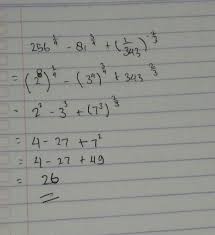 256^{1/4} - 81^{3/4} + (1/343)^{-2/3}
= (2^8)^{1/4} - (3^4)^{3/4} + 343^{2/3}
= 2^2 - 3^3 + (7^3)^{2/3}
= 4 - 27 + 7^2
= 4 - 27 + 49
= 26